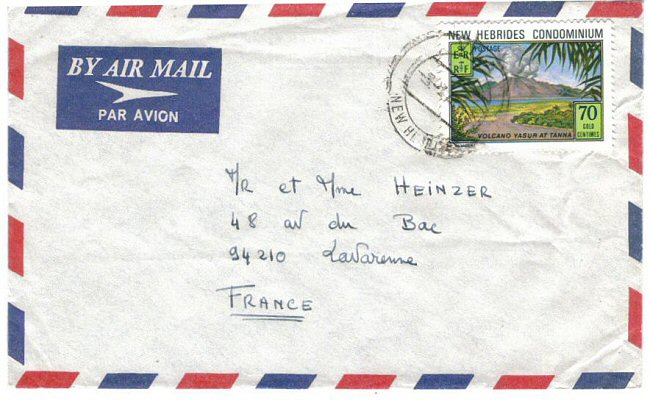 BY AIR MAIL
PAR AVION
NEW HEBRIDES CONDOMINIUM
POSTAGE
E R
RF
70
GOLD
CENTIMES
VOLCANO YASUR AT TANNA
NEW H
Mr et Mme HEINZER
48 av du Bac
94210 LaVarenne
FRANCE